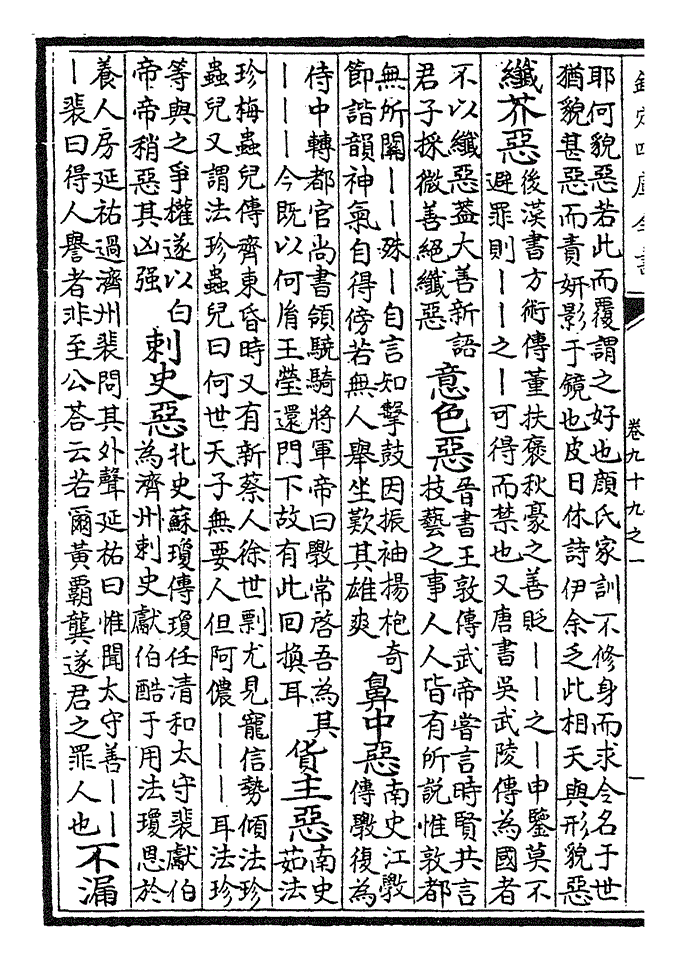 欽定四庫全書
卷九十九之一
耶何貌惡若此而覆謂之好也顏氏家訓不修身而求令名于世
猶貌甚惡而責妍影于鏡也皮日休詩伊余乏此相天與形貌惡
纎芥惡
後漢書方術傳董扶褒秋豪之善貶丨丨之丨申鑒莫不
避罪則丨丨之丨可得而禁也又唐書吳武陵傳為國者
不以纎惡蓋大善新語
君子採微善絕纎惡
意色惡
晉書王敦傳武帝嘗言時賢共言
技藝之事人人皆有所說惟敦都
無所關丨丨殊丨自言知擊鼓因振袖揚枹奇
節諧韻神氣自得傍若無人舉坐歎其雄爽
鼻中惡
南史江斆
傳斆復為
侍中轉都官尚書領驍騎將軍帝曰斆常啓吾為其
丨丨丨今既以何胤王瑩還門下故有此回換耳
貨主惡
南史
茹法
珍梅蟲兒傳齊東昏時又有新蔡人徐世剽尤見寵信勢傾法珍
蟲兒又謂法珍蟲兒曰何世天子無要人但阿儂丨丨丨耳法珍
等與之爭權遂以白
帝帝稍惡其凶强
刺史惡
北史蘇瓊傳瓊任清和太守裴獻伯
為濟州刺史獻伯酷于用法瓊恩於
養人房延祐過濟州裴問其外聲延祐曰惟聞太守善丨丨
丨裴曰得人譽者非至公荅云若爾黃霸龔遂君之罪人也
不漏